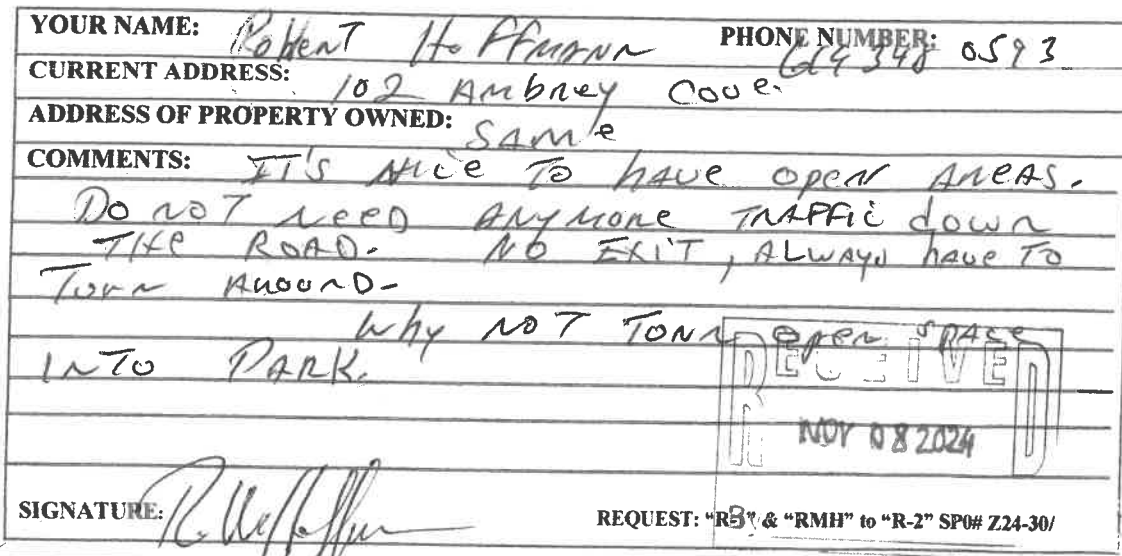 YOUR NAME: Robert Hoffmann PHONE NUMBER: 614 348 0593
CURRENT ADDRESS: 102 Ambrey Cove.
ADDRESS OF PROPERTY OWNED: SAMe
COMMENTS: IT'S Nice To have open AreAS.
Do NOT Need ANYMORE TRAFFIC down
THe ROAD. NO EXIT, ALWAYS have To
Turn AROUND-
Why NOT TURN open SPACE
INTO PARK.
RECEIVED
NOV 08 2024
SIGNATURE:
REQUEST: "R3" & "RMH" to "R-2" SP0# Z24-30/